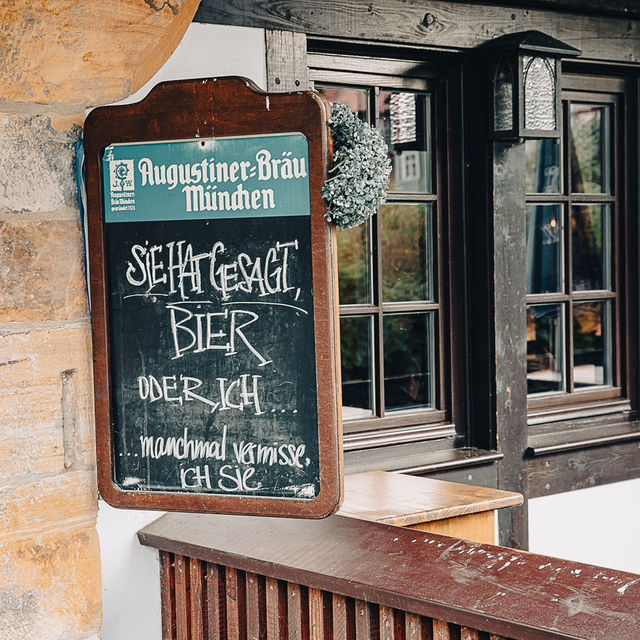 Augustiner-Bräu
München
J.W.
Augustiner-
Bräu München
SIE HAT GESAGT,
BIER
ODER, ICH...
...manchmal vermisse,
ICH SIE